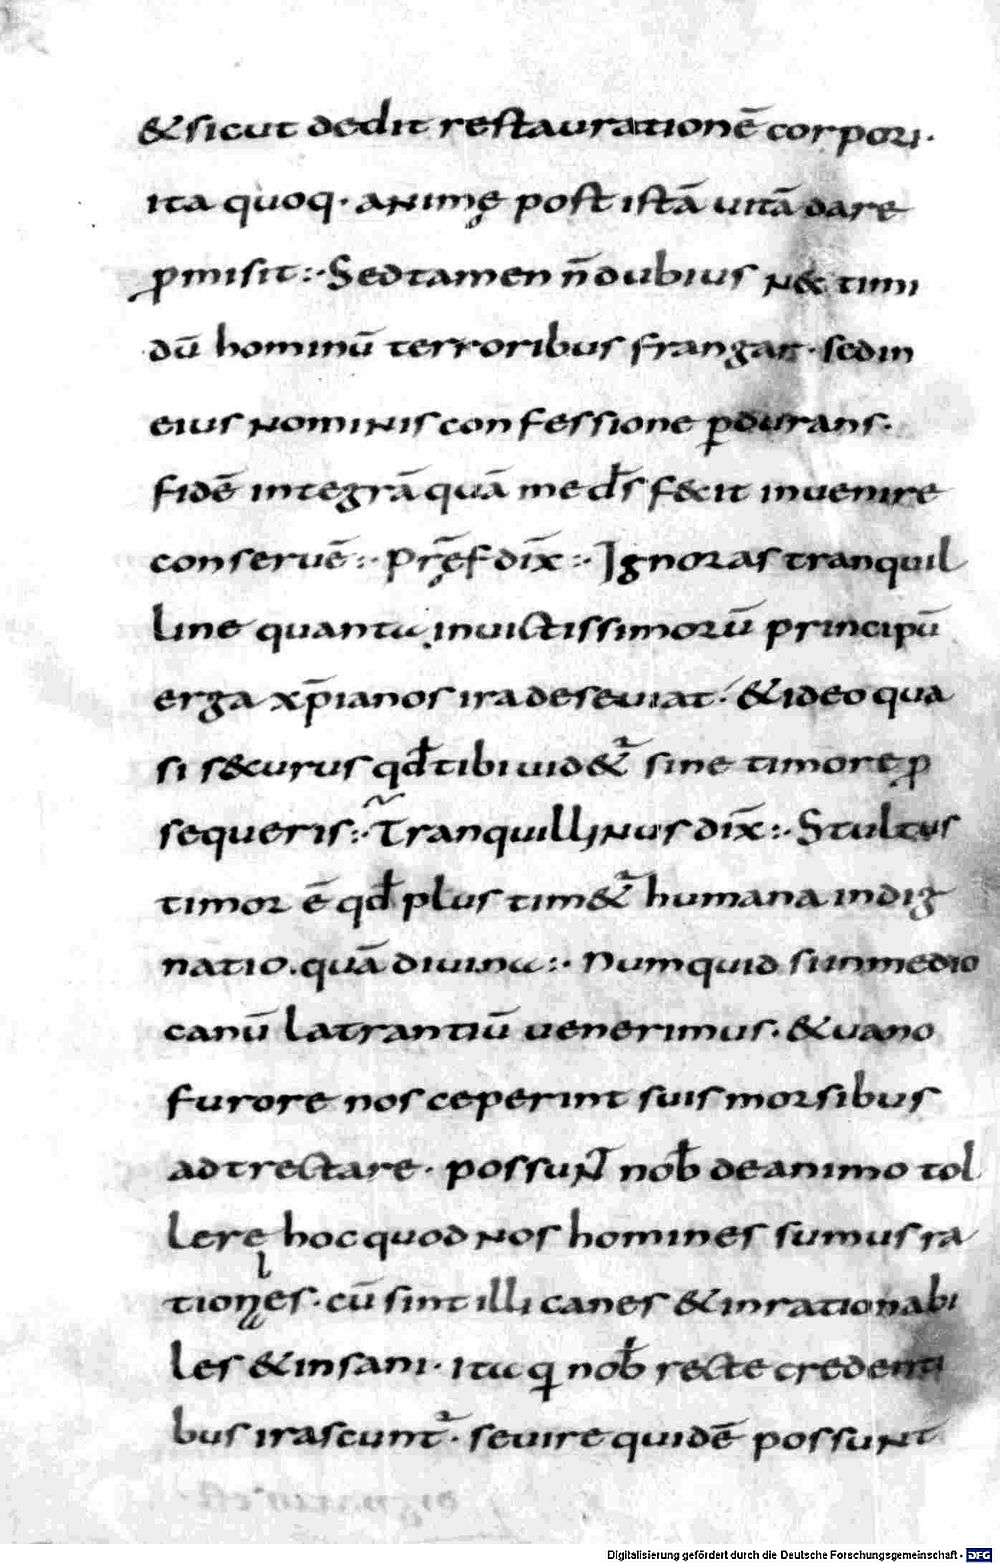 & sicut dedit restauratione̅ corpori·
ita quoq· animę post ista̅ uita̅ dare
p̱misit:· Sed tamen n̅ dubius n& timi
du̅ hominu̅ terroribus frangar· sed in
eius nominis confessione p̱durans·
fide̅ integra̅ qua̅ me d̅s f&cit inuenire
conserue̅:· Pr̅ęf dix̅:· Ignoras tranquil
line quanta inuictissimoru̅ principu̅
erga xp̅ianos ira deseuiat· & ideo qua
si s&curus qd̅ tibi uid&ᷣ sine timore p̱
sequeris:· Tranquillinus dix̅:· Stultus
timor e̅ qd̅ plus tim&ᷣ humana indig
natio. qua̅ diuina:· Numquid si in medio
canu̅ latrantiu̅ uenerimus· & uano
furore nos ceperint suis morsibus
adtrectare· possunt̅ nob̅ de animo tol
lere hoc quod nos homines sumus ra
tionles· cu̅ sint illi canes & inrationabi
les & insani· ita q̱ nob̅ recte credenti
bus irascuntᷣ· seuire quide̅ possunt